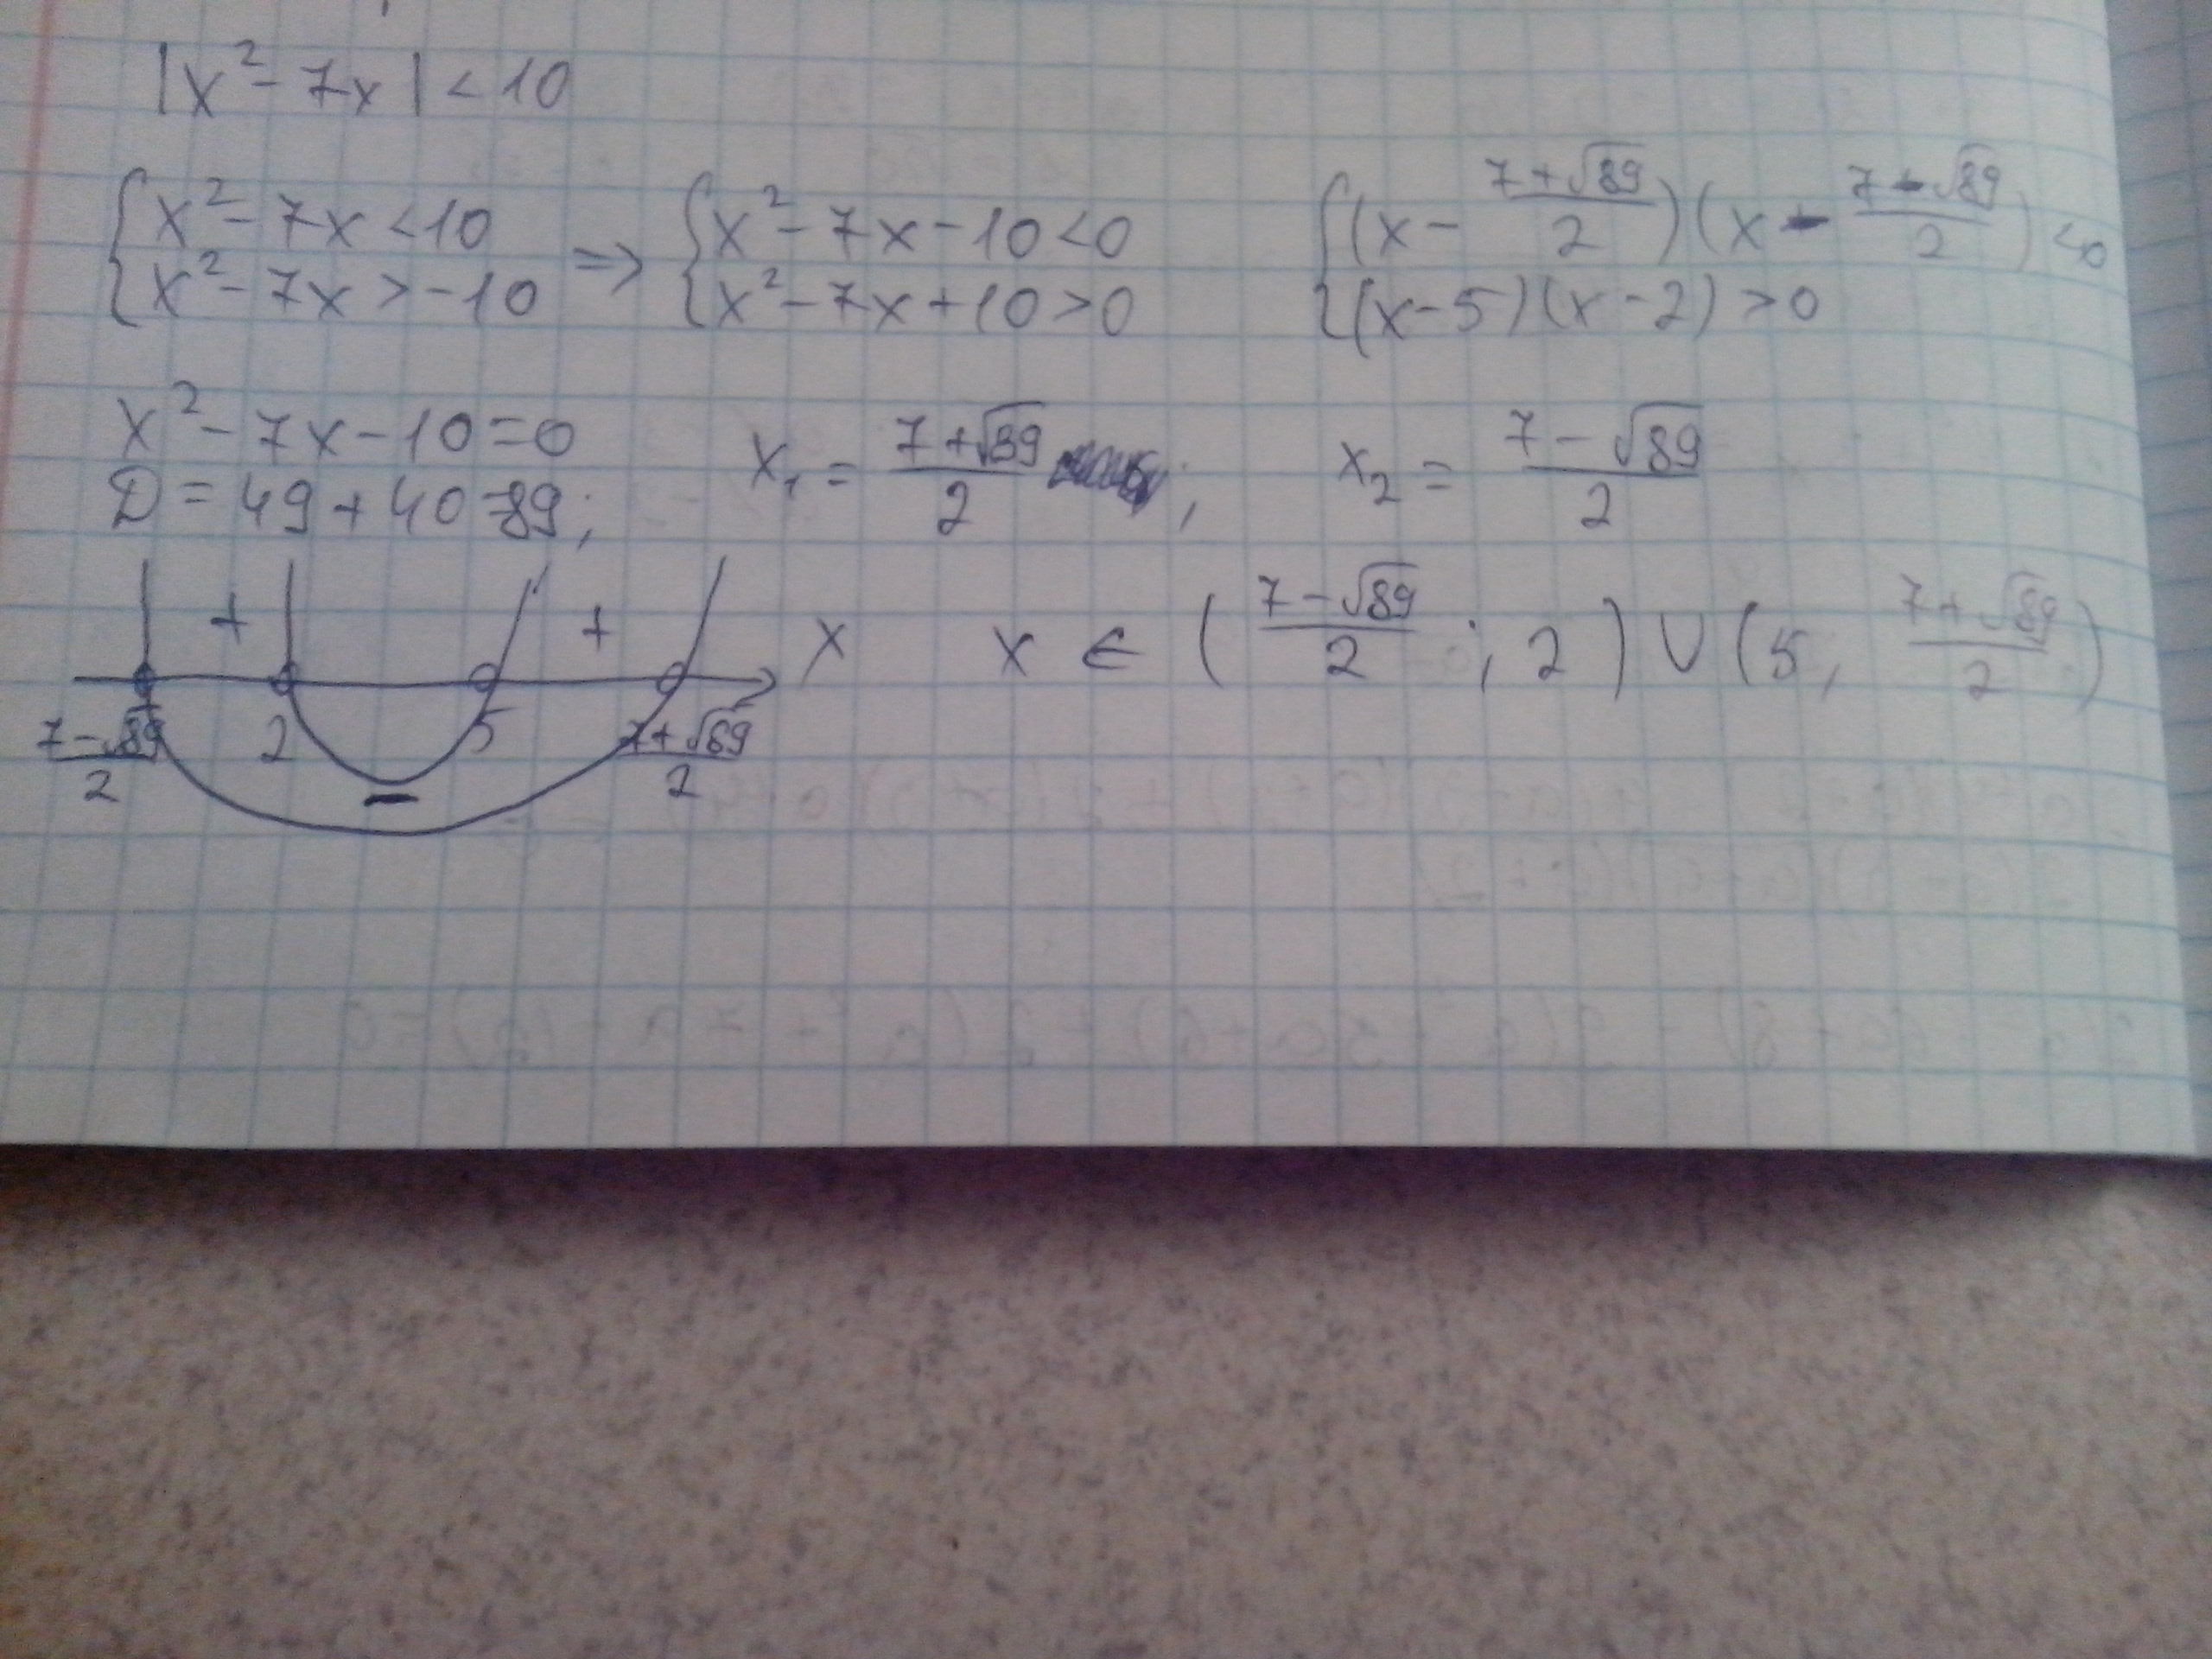 |x² - 7x| < 10
{ x² - 7x < 10 => { x² - 7x - 10 < 0 { (x - (7+√89)/2)(x - (7-√89)/2) < 0
{ x² - 7x > -10 { x² - 7x + 10 > 0 { (x-5)(x-2) > 0
x² - 7x - 10 = 0
D = 49 + 40 = 89; x₁ = (7+√89)/2; x₂ = (7-√89)/2
+ + x
(7-√89)/2 2 5 (7+√89)/2
−
x ∈ ((7-√89)/2; 2) ∪ (5, (7+√89)/2)